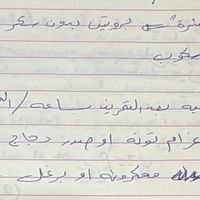 بروتين بدون سكر
سكوب
بعد التمرين ساعة / ال
غرام تونة او صدر دجاج
معكرونة او برغل